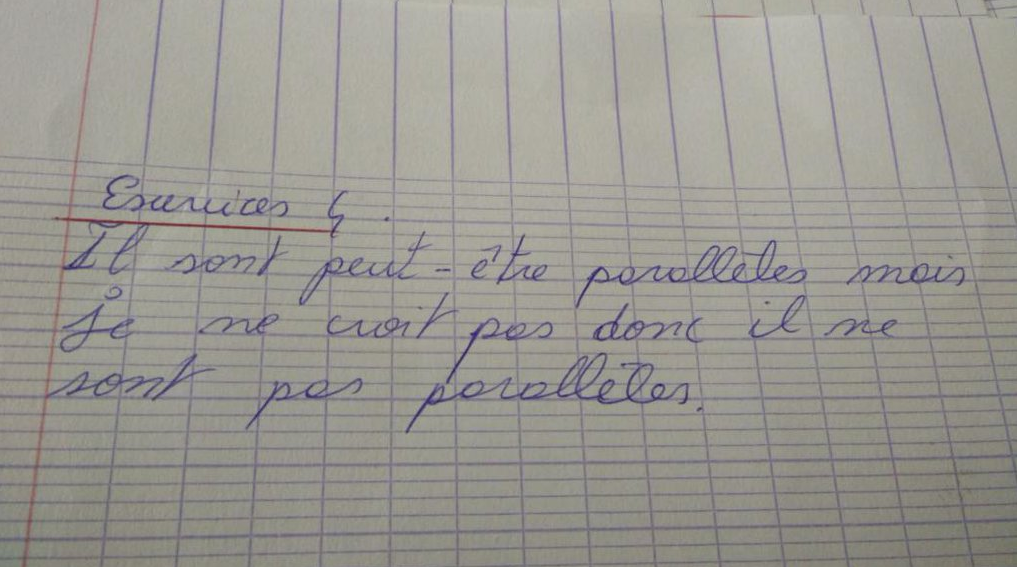 Exercices 4.
Il sont peut-être parallèles mais
je ne croit pas donc il ne
sont pas parallèles.